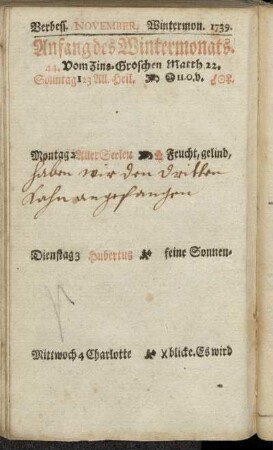 Verbess. NOVEMBER. Wintermon. 1739.
Anfang des Wintermonats.
44. Vom Zins-Groschen Matth 22.
Sonntag 1 23 All. Heil. u.0.v.
Montag 2 Aller Seelen Feucht, gelind,
haben wir den dritten
Kahn angefangen
Dienstag 3 Hubertus feine Sonnen-
Mittwoch 4 Charlotte X blicke. Es wird